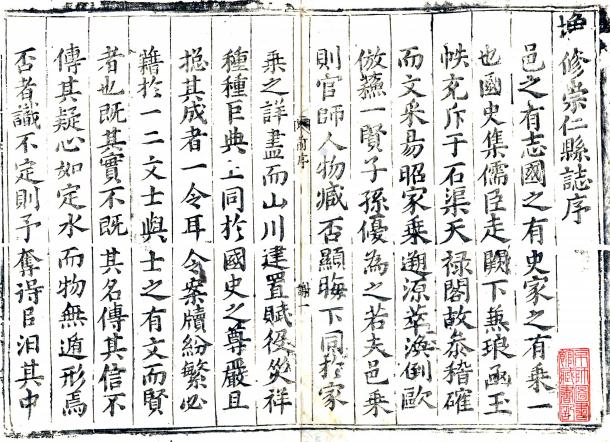 修崇仁縣誌序
邑之有志國之有史家之有乘一
也國史集儒臣走闕下蒹琅函玉
帙充斥于石渠天禄閣故叅稽確
而文采昜昭家乘遡源萃渙倒歐
倣蘓一賢子孫優為之若夫邑乘
則官師人物臧否顯晦下同於家
南序
乘之詳盡而山川建置賦役災祥
種種巨典上同於國史之尊嚴且
揔其成者一令耳令案牘紛繁必
籍於一二文士與士之有文而賢
者也既其實不既其名傳其信不
傳其疑心如定水而物無遁形焉
否者識不定則予奪淂曰汨其中